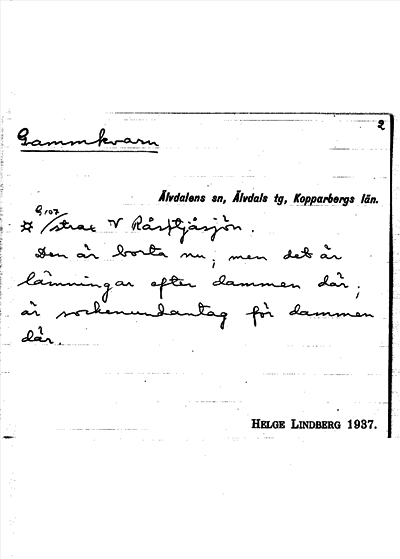 2
Gammkvarn
Älvdalens sn, Älvdals tg, Kopparbergs län.
G, 107
¤/strax V Råsjön.
Den är borta nu; men det är
lämningar efter dammen där;
är sockenundantag för dammen
där.
HELGE LINDBERG 1937.